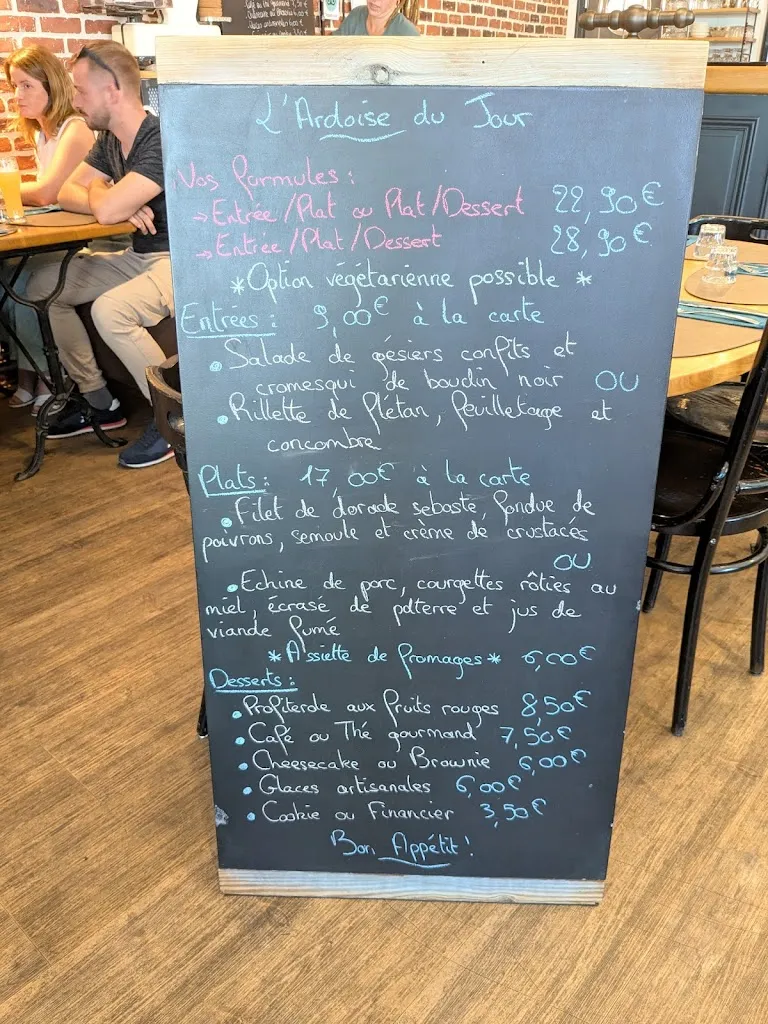 L'Ardoise du Jour
Vos formules :
→ Entrée / Plat ou Plat / Dessert 22,90€
→ Entrée / Plat / Dessert 28,90€
* Option végétarienne possible *
Entrées : 9,00€ à la carte
• Salade de gésiers confits et
cromesqui de boudin noir OU
• Rillette de flétan, feuilletage et
concombre
Plats : 17,00€ à la carte
• Filet de dorade sebaste, fondue de
poivrons, semoule et crème de crustacés
OU
• Echine de porc, courgettes rôties au
miel, écrasé de pdterre et jus de
viande fumé
* Assiette de fromages * 6,00€
Desserts :
• Profiterole aux fruits rouges 8,50€
• Café ou Thé gourmand 7,50€
• Cheesecake ou Brownie 6,00€
• Glaces artisanales 6,00€
• Cookie ou Financier 3,50€
Bon Appétit !